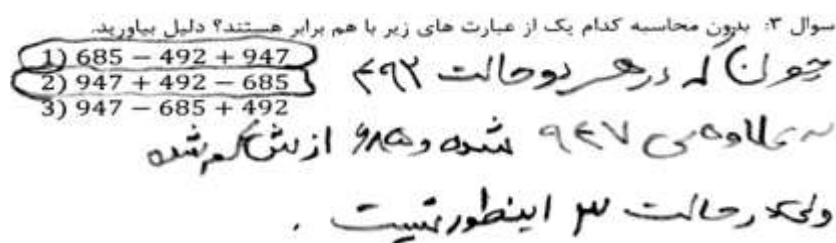 سوال ۳: بدون محاسبه کدام یک از عبارت های زیر با هم برابر هستند؟ دلیل بیاورید.
1) 685 − 492 + 947
2) 947 + 492 − 685
3) 947 − 685 + 492
چون که در هر دو حالت ۴۹۲
به علاوه ی ۹۴۷ شده و ۶۸۵ ازش کم شده
ولی در حالت ۳ اینطور نیست .